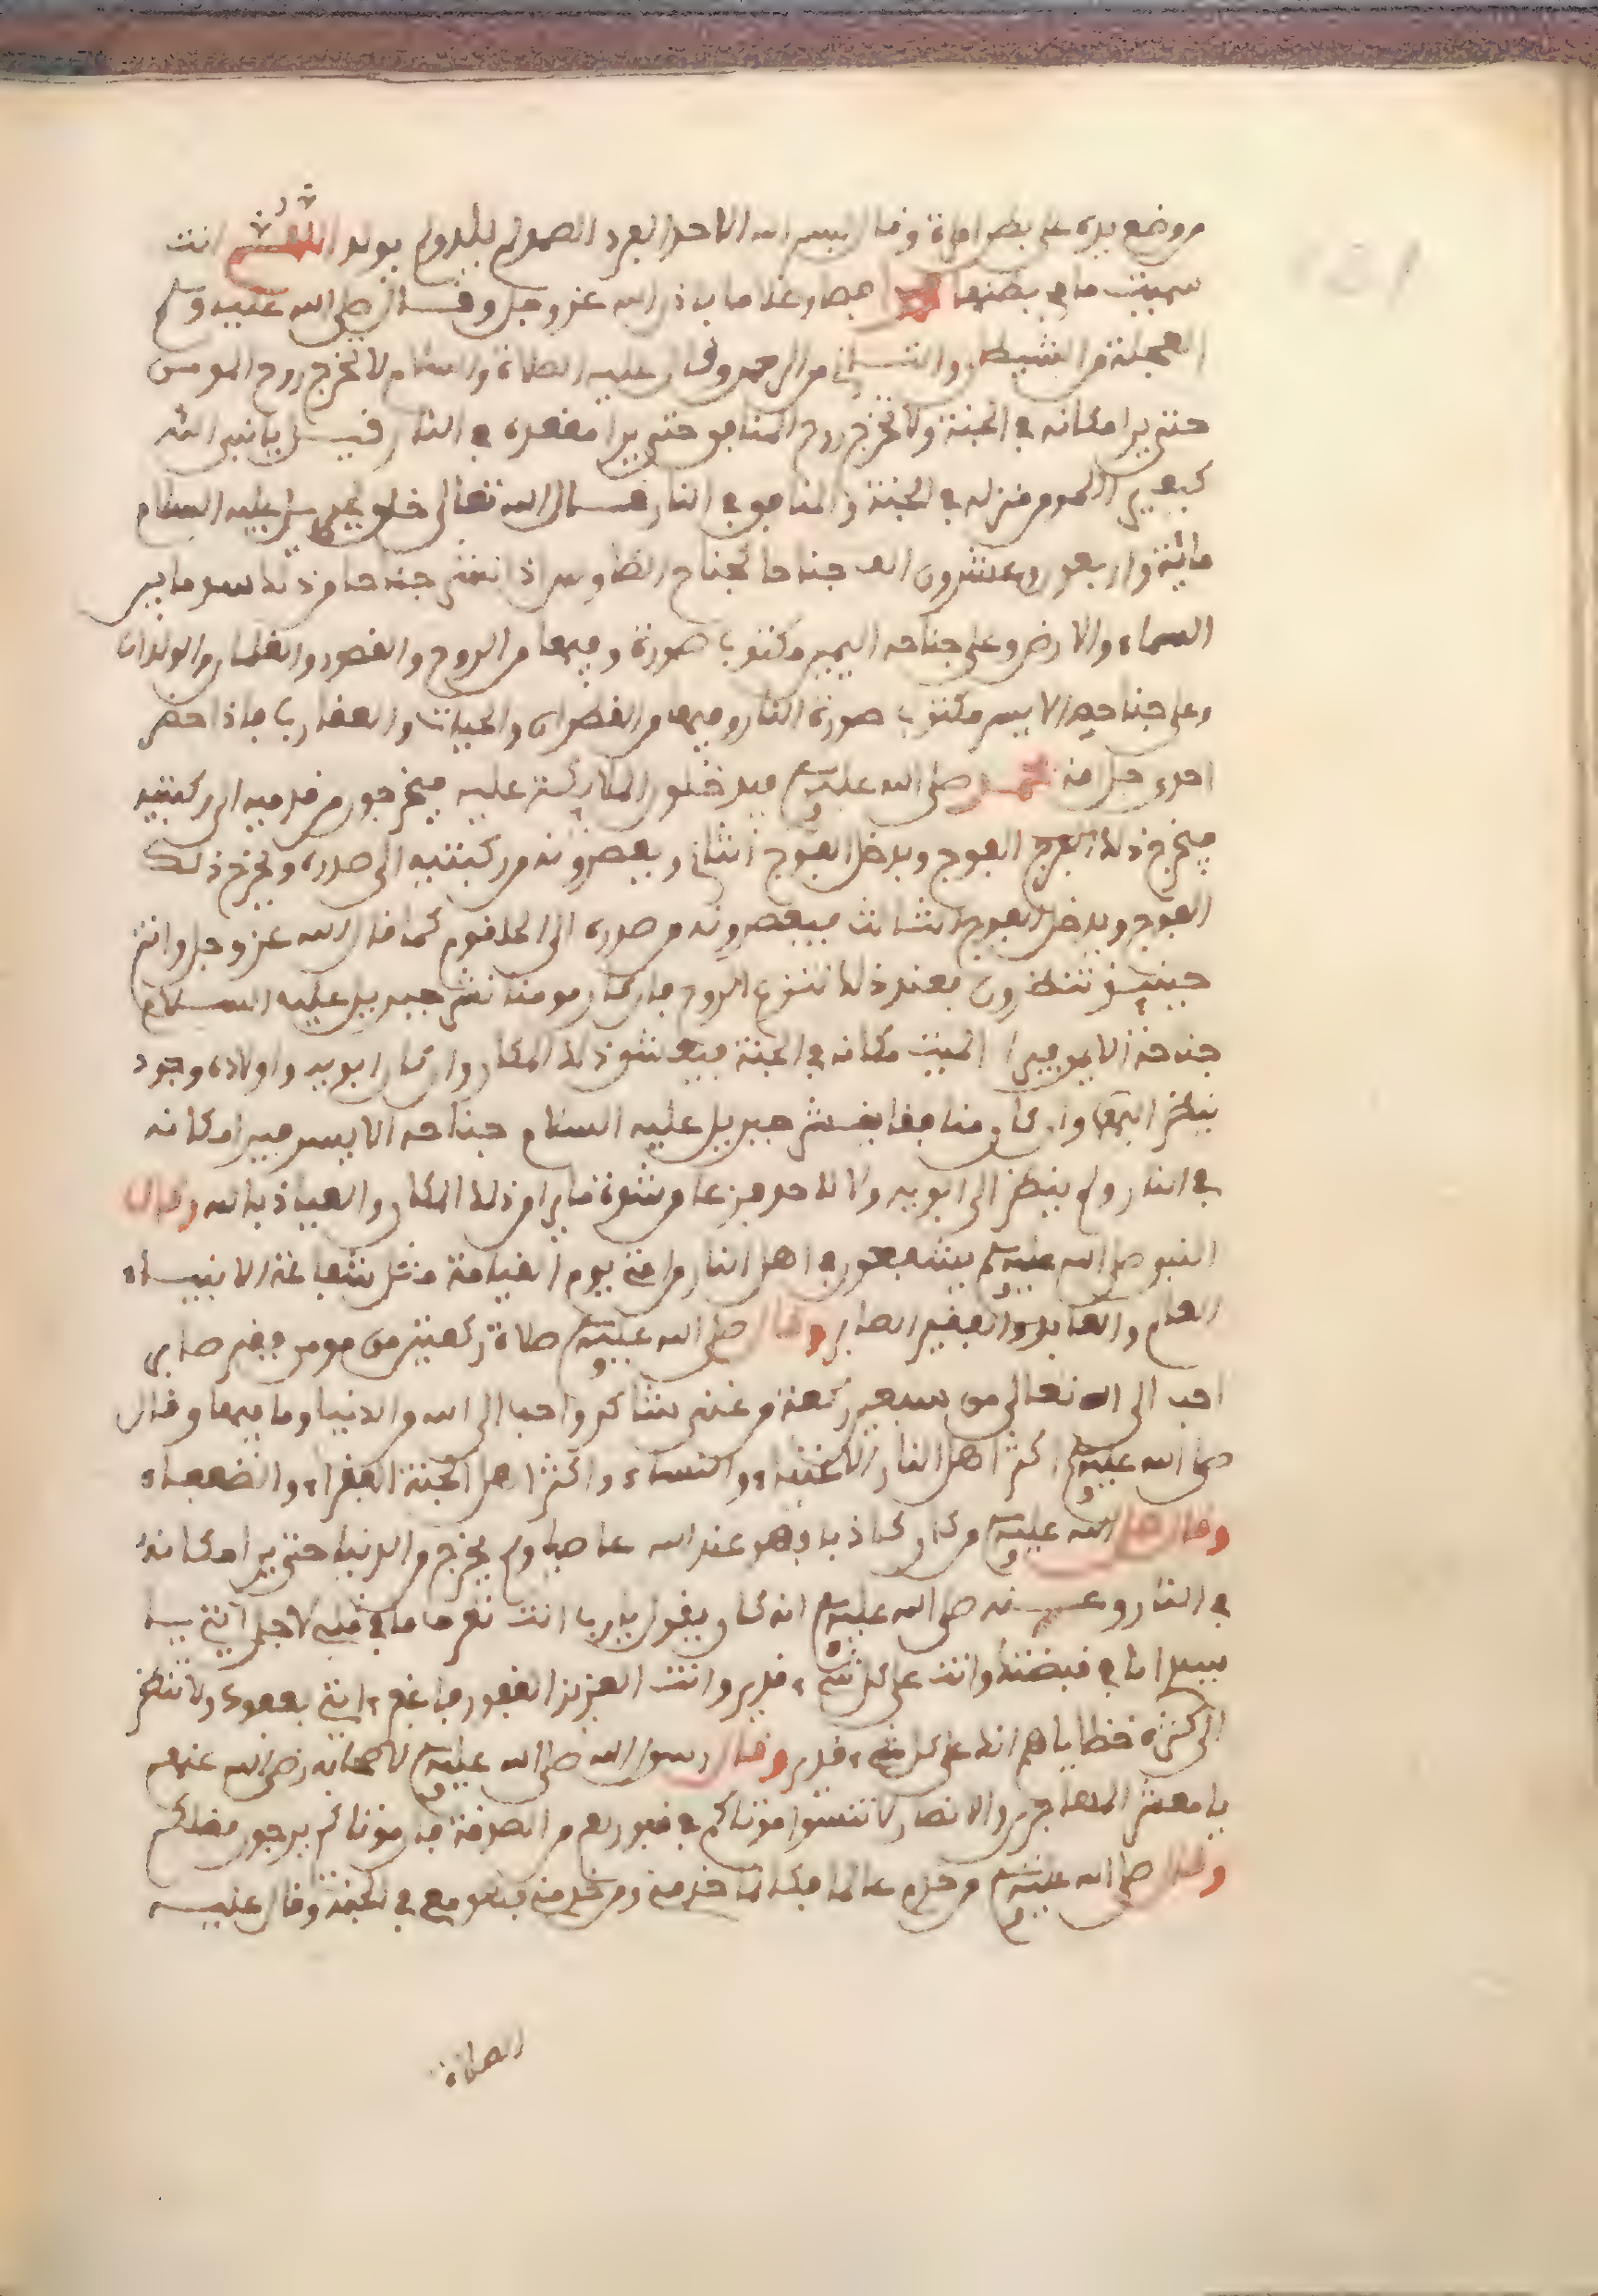 من وضع يده على بطن امراة وقال بسم الله الاحد الفرد الصمد لم يلد ولم يولد اللهم انت
سميت ما في بطنها محمدا فصار غلاما باذن الله عز وجل وقال صلى الله عليه وسلم
العجلة من الشيطان والتاني من الرحمن وقال عليه الصلاة والسلام لا تخرج روح المومن
حتى يرا مكانه في الجنة ولا تخرج روح المنافق حتى يرا مقعده في النار قيل يا نبي الله
كيف يرا المومن منزله في الجنة والمنافق في النار قال ان الله تعالى خلق جبريل عليه السلام
مائة واربعة وعشرون الف جناحا كجناح الطاوس اذا نشر جناحا من ذلك سد ما بين
السماء والارض وعلى جناحه اليمين مكتوب صورة وفيها من الروح والقصور والغلمان والولدان
وعلى جناحه الايسر مكتوب صورة النار وفيها من القطران والحيات والعقارب فاذا حضر
احد اجل امة محمد صلى الله عليه وسلم فيدخلون الملائكة عليه فيخرجون من قدميه الى ركبتيه
فيخرج ذلك الفوج ويدخل الفوج الثاني ويعصرونه من ركبتيه الى صدره ويخرج ذلك
الفوج ويدخل الفوج الثالث فيعصرونه من صدره الى الحلقوم كما قال الله عز وجل وانتم
حينئذ تنظرون فعند ذلك تنزع الروح فان كان مومنا نشر جبريل عليه السلام
جناحه الايمن فيرا الميت مكانه في الجنة فيعشق ذلك المكان وان كان ابويه واولاده وجود
ينظر اليها وان كان منافقا ينشر جبريل عليه السلام جناحه الايسر فيرا مكانه
في النار ولم ينظر الى ابويه ولا لاحد فزعا من شدة ما يرا من ذلك المكان والعياذ بالله وقال
النبي صلى الله عليه وسلم يشفعون في اهل النار من امتي يوم القيامة مثل شفاعة الانبياء
العالم والعابد والفقير الصابر وقال صلى الله عليه وسلم صلاة ركعتين من مومن فقير صابر
احب الى الله تعالى من سبعين ركعة من غني شاكر واحب الى الله من الدنيا وما فيها وقال
صلى الله عليه وسلم اكثر اهل النار الاغنياء والنساء واكثر اهل الجنة الفقراء والضعفاء
وقال صلى الله عليه وسلم من كان كذابا فهو عند الله عاصيا ولم يخرج من الدنيا حتى يرا مكانه
في النار وعنه صلى الله عليه وسلم انه كان يقول يا رب انت تعرف ما في قلبي لاجل امتي
انا في قبضتك وانت على كل شيء قدير وانت العزيز الغفور فاغفر امتي بعفوك ولا تنظر
الى كثرة خطاياهم انك على كل شيء قدير وقال رسول الله صلى الله عليه وسلم لاصحابه رضي الله عنهم
يا معشر المهاجرين والانصار لا تنسوا موتاكم في قبورهم من الصدقة فان موتاكم يرجون فضلكم
وقال صلى الله عليه وسلم من خدم عالما فكانما خدمني ومن خدمني فهو معي في الجنة وقال عليه
الصلاة